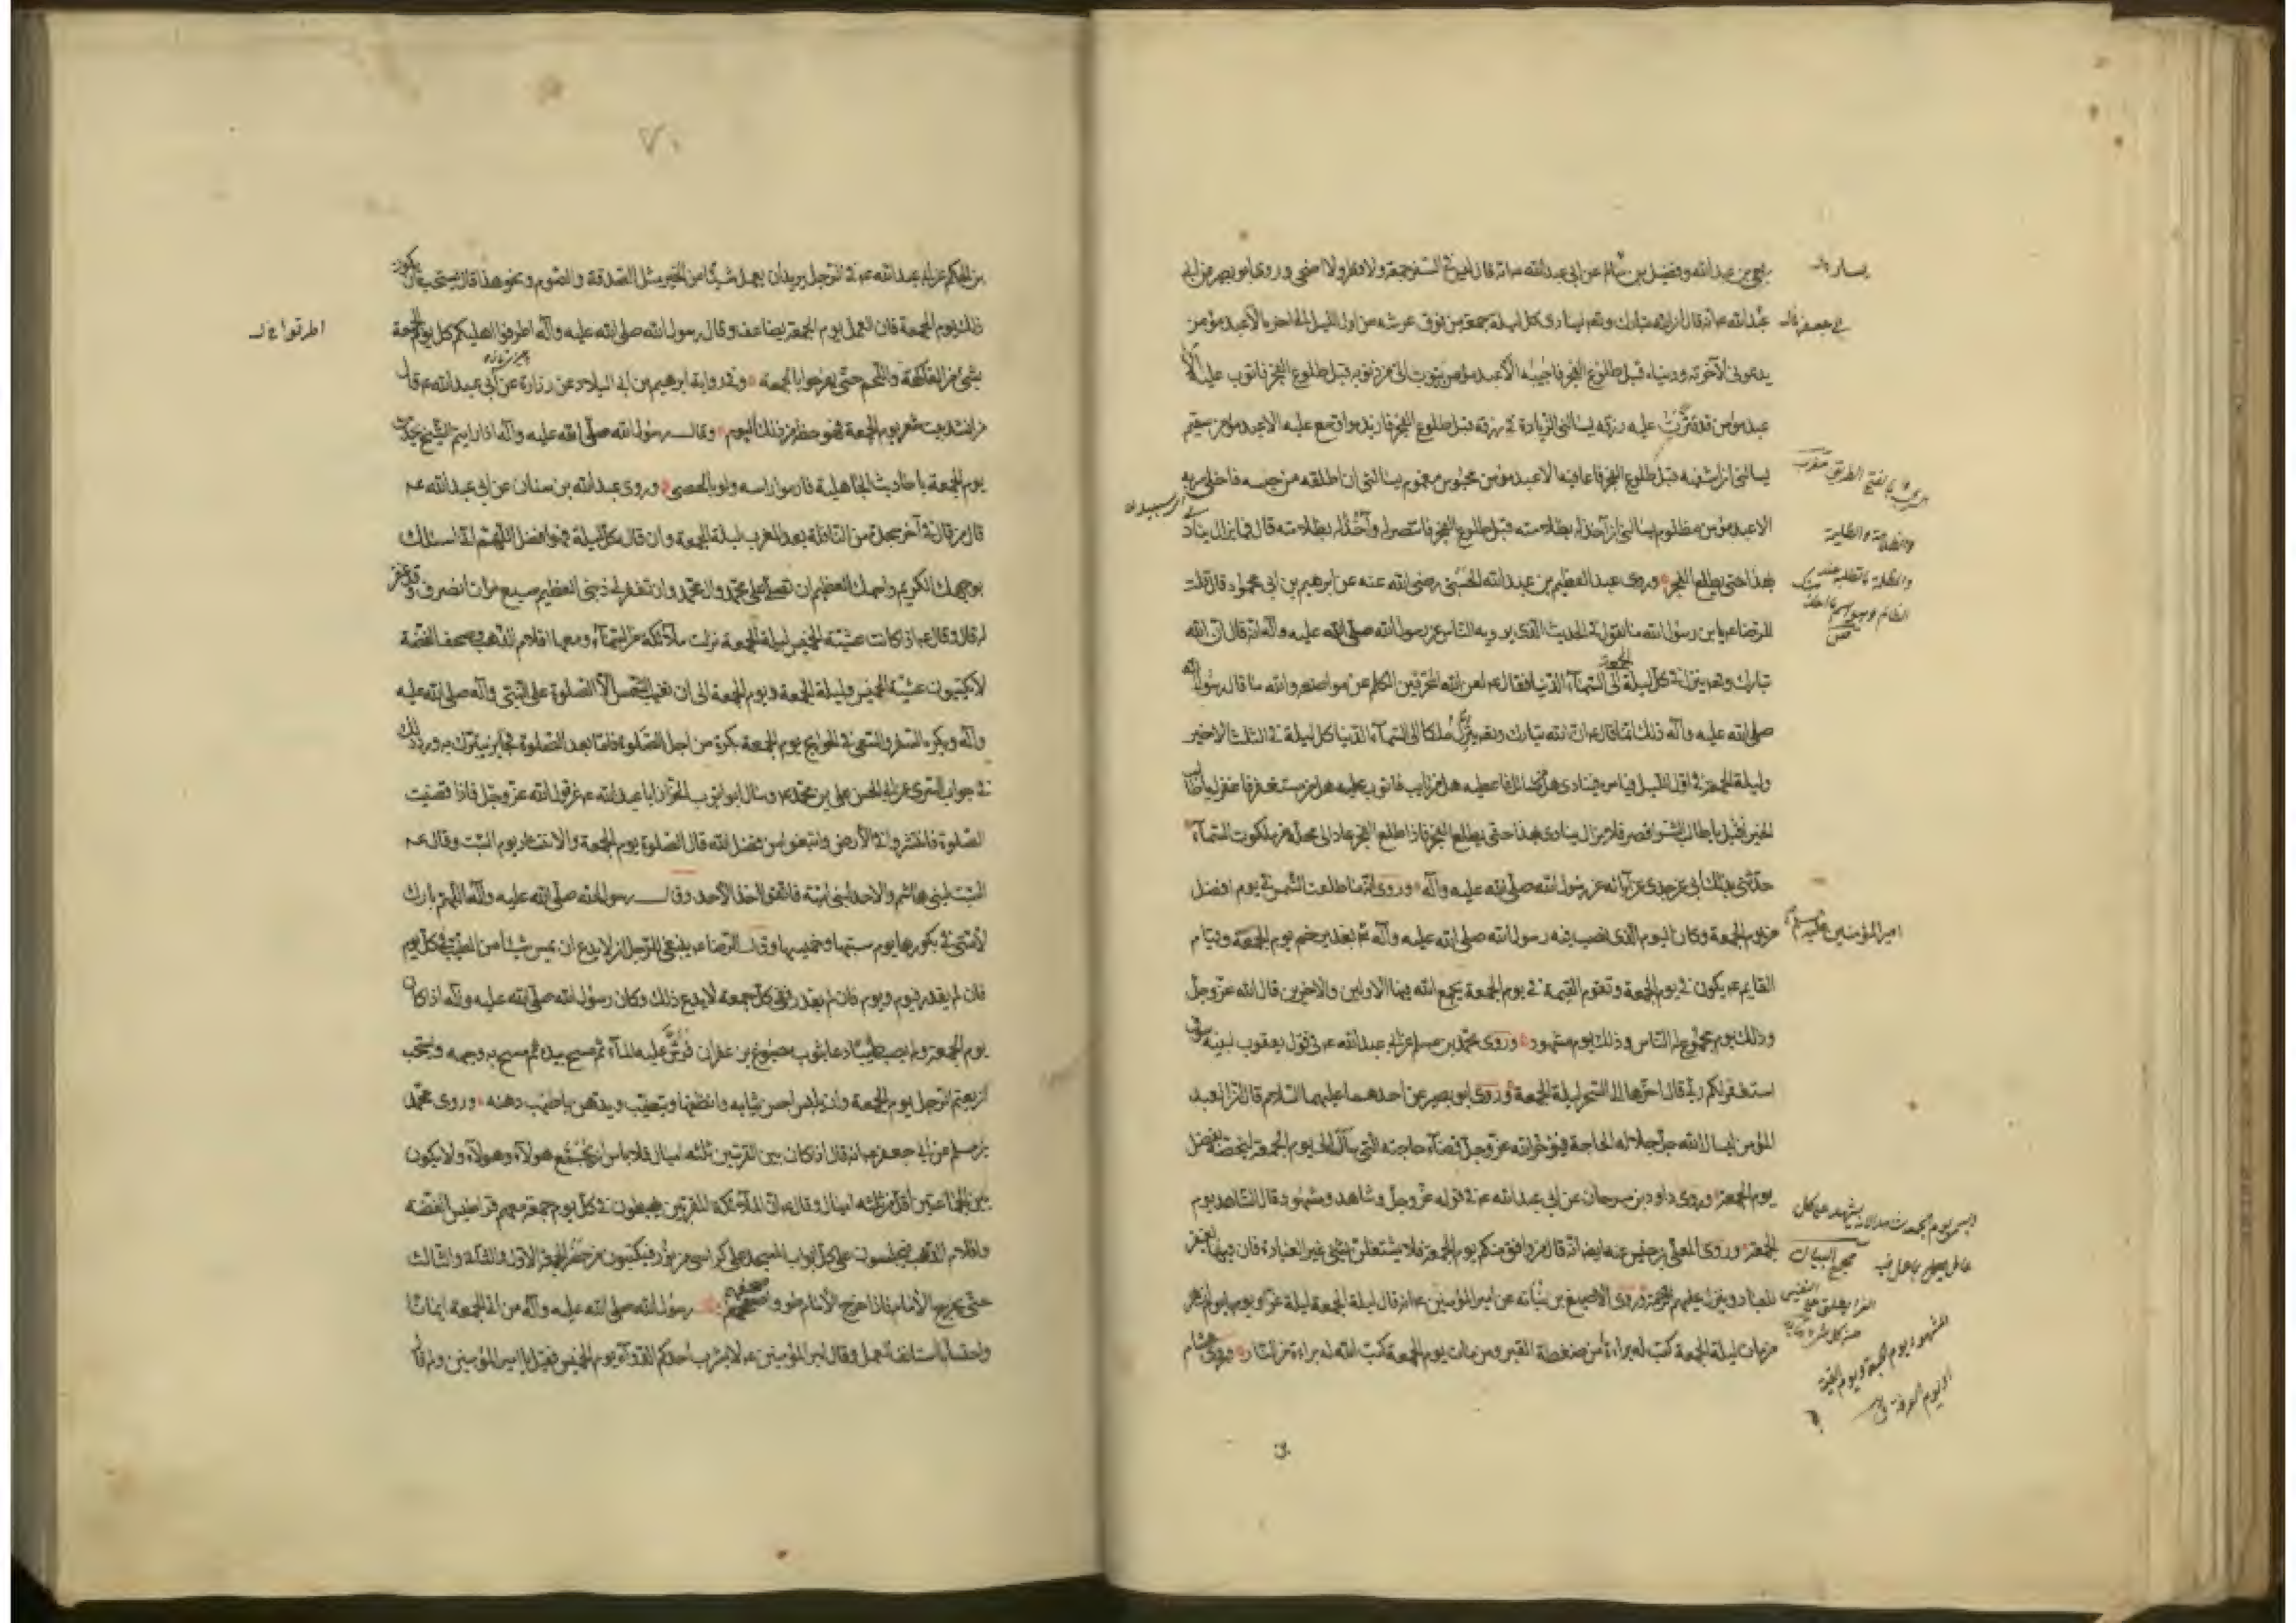 ربعي بن عبد الله وفضيل بن عن ابي عبد الله ع انه قال ليس في السفر جمعة ولا فطر ولا اضحى وروى ابو بصير عن ابي
عبد الله ع انه قال ان الله تبارك وتعم لينادى كل ليلة جمعة من فوق عرشه من اول الليل الى اخره الا عبد مؤمن
يدعونى لآخرته ودنياه قبل طلوع الفجر فاجيبه الا عبد مؤمن يتوب الى من ذنوبه قبل طلوع الفجر فاتوب عليه الا
عبد مؤمن قد قترت عليه رزقه يسالنى الزيادة في رزقه قبل طلوع الفجر فازيده واوسع عليه الا عبد مؤمن سقيم
يسالنى ان اشفيه قبل طلوع الفجر فاعافيه الا عبد مؤمن محبوس مغموم يسالنى ان اطلقه من حبسه فاخلى سربه
الا عبد مؤمن مظلوم يسالنى ان آخذ له بظلامته قبل طلوع الفجر فانتصر له وآخذ له بظلامته قال فما يزال ينادى
بهذا حتى يطلع الفجر وروى عبد العظيم بن عبد الله الحسنى رضى الله عنه عن ابرهيم بن ابى محمود قال قلت
للرضا ع يا بن رسول الله ما تقول في الحديث الذى يرويه الناس عن رسول الله صلى الله عليه وآله انه قال ان الله
تبارك وتعم ينزل في كل ليلة الجمعة الى السماء الدنيا فقال ع لعن الله المحرفين الكلم عن مواضعه والله ما قال رسول الله
صلى الله عليه وآله ذلك انما قال ع ان الله تبارك وتعم ينزل ملكا الى السماء الدنيا كل ليلة في الثلث الاخير
وليلة الجمعة في اول الليل فيامره فينادى هل من سائل فاعطيه هل من تايب فاتوب عليه هل من مستغفر فاغفر له يا طالب
الخير اقبل يا طالب الشر اقصر فلا يزال ينادى بهذا حتى يطلع الفجر فاذا طلع الفجر عاد الى محله من ملكوت السماء
حدثنى بذلك ابى عن جدى عن آبائه عن رسول الله صلى الله عليه وآله وروى انه ما طلعت الشمس في يوم افضل
من يوم الجمعة وكان اليوم الذى نصب فيه رسول الله صلى الله عليه وآله بغدير خم يوم الجمعة وقيام
القايم ع يكون في يوم الجمعة وتقوم القيمة في يوم الجمعة يجمع الله فيها الاولين والاخرين قال الله عز وجل
وذلك يوم مجموع له الناس وذلك يوم مشهود وروى محمد بن مسلم عن ابى عبد الله ع في قول يعقوب لبنيه سوف
استغفر لكم ربى قال اخرها الى السحر ليلة الجمعة وروى ابو بصير عن احدهما عليهما السلام قال ان العبد
المؤمن ليسال الله جل جلاله الحاجة فيؤخر الله عز وجل قضاء حاجته التى سأل الى يوم الجمعة ليخصه بفضل
يوم الجمعة وروى داود بن سرحان عن ابى عبد الله ع في قوله عز وجل وشاهد ومشهود قال الشاهد يوم
الجمعة وروى المعلى بن خنيس عنه ايضا انه قال من وافق منكم يوم الجمعة فلا يشتغلن بشئ غير العبادة فان فيها يغفر
للعباد وينزل عليهم الرحمة وروى الاصبغ بن نباته عن امير المؤمنين ع انه قال ليلة الجمعة ليلة غراء ويومها يوم ازهر
من مات ليلة الجمعة كتب له براءة من ضغطة القبر ومن مات يوم الجمعة كتب الله له براءة من النار وروى هشام
امير المؤمنين عليه السلام
مجمع البيان
بن الحكم عن ابى عبد الله ع في الرجل يريد ان يعمل شيئا من الخير مثل الصدقة والصوم ونحو هذا قال يستحب ان يكون
ذلك يوم الجمعة فان العمل يوم الجمعة يضاعف وقال رسول الله صلى الله عليه وآله اطرفوا اهليكم كل يوم الجمعة
بشئ من الفاكهة واللحم حتى يفرحوا بالجمعة وفي رواية ابرهيم بن ابى البلاد عن زرارة عن ابى عبد الله ع قال
من انشد بيت شعر يوم الجمعة فهو حظه من ذلك اليوم وقال رسول الله صلى الله عليه وآله اذا رايتم الشيخ يحدث
يوم الجمعة باحاديث الجاهلية فارموا راسه ولو بالحصى وروى عبد الله بن سنان عن ابى عبد الله ع
قال من قال في آخر سجدة من النافلة بعد المغرب ليلة الجمعة وان قال كل ليلة فهو افضل اللهم انى اسئلك
بوجهك الكريم واسمك العظيم ان تصلى على محمد وال محمد وان تغفر لى ذنبى العظيم سبع مرات انصرف وقد غفر
له قال وقال ع اذا كانت عشية الخميس ليلة الجمعة نزلت ملائكة من السماء ومعها اقلام الذهب وصحف الفضة
لا يكتبون عشية الخميس وليلة الجمعة ويوم الجمعة الى ان تغيب الشمس الا الصلوة على النبى وآله صلى الله عليه
وآله ويكره السفر والسعى في الحوايج يوم الجمعة بكرة من اجل الصلوة فاما بعد الصلوة فجايز يتبرك به ورد ذلك
في جواب السرى عن ابى الحسن على بن محمد ع وسال ابو ايوب الخزاز ابا عبد الله ع عن قول الله عز وجل فاذا قضيت
الصلوة فانتشروا في الأرض وابتغوا من فضل الله قال الصلوة يوم الجمعة والانتشار يوم السبت وقال ع
السبت لبنى هاشم والاحد لبنى امية فاتقوا اخذ الأحد وقال رسول الله صلى الله عليه وآله اللهم بارك
لأمتى في بكورها يوم سبتها وخميسها وقال الرضا ع ينبغى للرجل ان لا يدع ان يمس شيئا من الطيب في كل يوم
فان لم يقدر فيوم ويوم فان لم يقدر ففى كل جمعة لا يدع ذلك وكان رسول الله صلى الله عليه وآله اذا كان
يوم الجمعة ولم يصب طيبا دعا بثوب مصبوغ بزعفران فرش عليه الماء ثم مسح بيده ثم مسح به وجهه ويستحب
ان يعتم الرجل يوم الجمعة وان يلبس احسن ثيابه وانظفها ويتطيب ويدهن باطيب دهنه وروى محمد
بن مسلم عن ابى جعفر ع انه قال اذا كان بين القريتين ثلثة اميال فلا باس ان يجمع هولاء وهولاء ولا يكون
بين الجماعتين اقل من ثلثة اميال وقال ع ان الملائكة المقربين يهبطون في كل يوم جمعة معهم قراطيس الفضة
واقلام الذهب فيجلسون على كل ابواب المسجد على كراسى من نور فيكتبون من حضر الجمعة الاول والثانى والثالث
حتى يخرج الأمام فاذا خرج الأمام طووا صحفهم رسول الله صلى الله عليه وآله من اتى الجمعة ايمانا
واحتسابا استانف العمل وقال امير المؤمنين ع لا يشرب احدكم الدواء يوم الخميس فقيل يا امير المؤمنين ولم